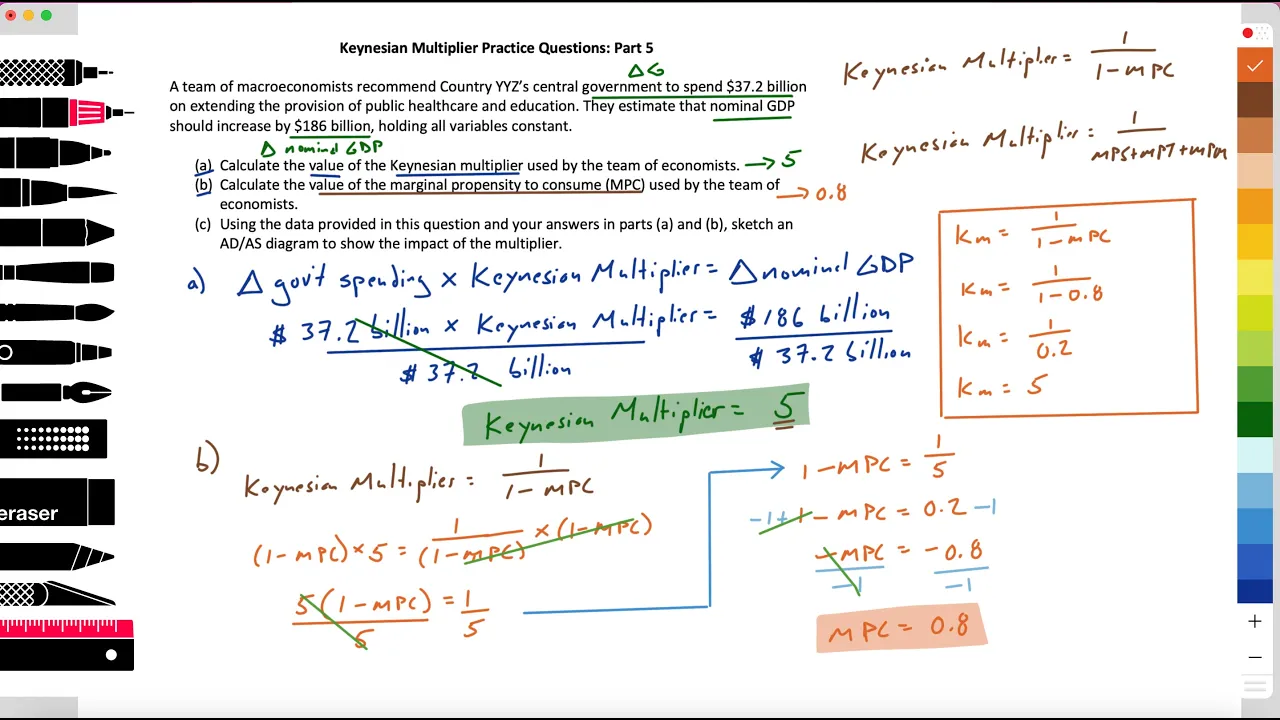 Keynesian Multiplier Practice Questions: Part 5
ΔG
A team of macroeconomists recommend Country YYZ's central government to spend $37.2 billion
on extending the provision of public healthcare and education. They estimate that nominal GDP
should increase by $186 billion, holding all variables constant.
Δ nominal GDP
(a) Calculate the value of the Keynesian multiplier used by the team of economists. → 5
(b) Calculate the value of the marginal propensity to consume (MPC) used by the team of
economists.
→ 0.8
(c) Using the data provided in this question and your answers in parts (a) and (b), sketch an
AD/AS diagram to show the impact of the multiplier.
Keynesian Multiplier = 1 / 1 - MPC
Keynesian Multiplier = 1 / MPS + MPT + MPM
Km = 1 / 1 - MPC
Km = 1 / 1 - 0.8
Km = 1 / 0.2
Km = 5
a) Δ gov't spending × Keynesian Multiplier = Δ nominal GDP
$ 37.2 billion × Keynesian Multiplier = $186 billion
$ 37.2 billion $ 37.2 billion
Keynesian Multiplier = 5
b)
Keynesian Multiplier = 1 / 1 - MPC
(1 - MPC) × 5 = 1 / (1 - MPC) × (1 - MPC)
5 (1 - MPC) / 5 = 1 / 5
1 - MPC = 1 / 5
-1 + 1 - MPC = 0.2 - 1
-MPC / -1 = -0.8 / -1
MPC = 0.8
eraser